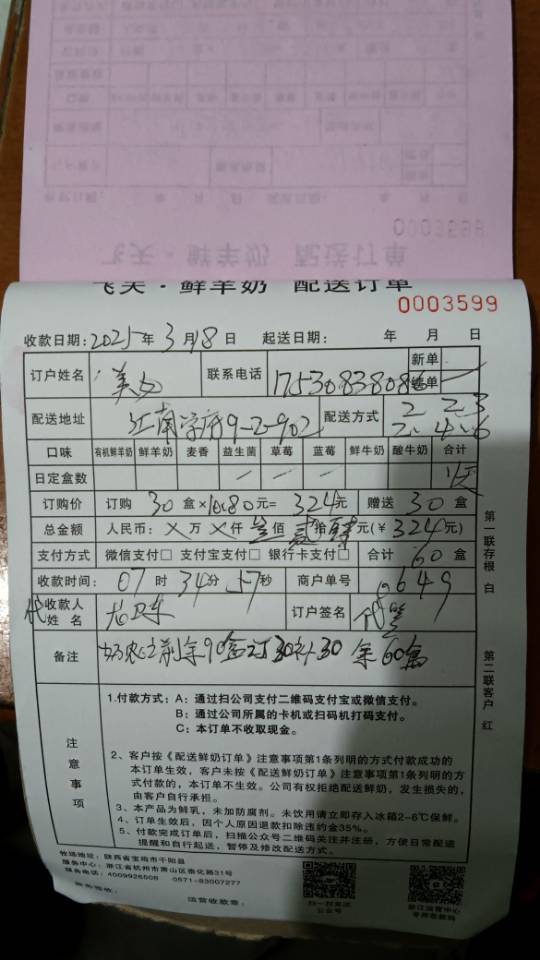 飞天·鲜羊奶 配送订单
0003598
飞天·鲜羊奶 配送订单
0003599
收款日期：2025年 3月18日 起送日期： 年 月 日
订户姓名 美女 联系电话 17530838086 新单 续单
配送地址 江南学府9-2-902 配送方式 2 2.3 2.4.6
口味 有机鲜羊奶 鲜羊奶 麦香 益生菌 草莓 蓝莓 鲜牛奶 酸牛奶 合计
日定盒数 一 一 一
订购价 订购 30 盒×10.80元= 324元 赠送 30 盒
总金额 人民币：乂万乂仟叁佰贰拾肆元(￥324元)
支付方式 微信支付□ 支付宝支付□ 银行卡支付□ 合计 60 盒
收款时间： 07 时 34分 57秒 商户单号 6649
代收款人姓名 订户签名 代签
备注 剩余90盒订30补30 余60盒
第一联存根 白
第二联客户 红
注意事项
1.付款方式：A：通过扫公司支付二维码支付宝或微信支付。
B：通过公司所属的卡机或扫码机打码支付。
C：本订单不收取现金。
2、客户按《配送鲜奶订单》注意事项第1条列明的方式付款成功的
本订单生效，客户未按《配送鲜奶订单》注意事项第1条列明的方
式付款的，本订单不生效。公司有权拒绝配送鲜奶，发生损失的，
由客户自行承担。
3、本产品为鲜乳，未加防腐剂。未饮用请立即存入冰箱2-6℃保鲜。
4、订单生效后，因个人原因退款扣除违约金35%。
5、付款完成订单后，扫描公众号二维码关注并注册，方便日常配送
提醒和自行起送，暂停及修改配送方式。
牧场地址：陕西省宝鸡市千阳县
服务中心：浙江省杭州市萧山区崇化路31号
服务电话：4009926508 0571-83007277
运营收款章：
扫一扫关注
公众号
浙江运营中心
专用客服码